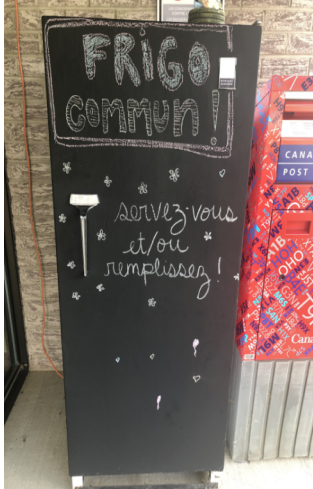 FRIGO
COMMUN!
servez-vous
et/ou
remplissez!
CANA
POST
Cana